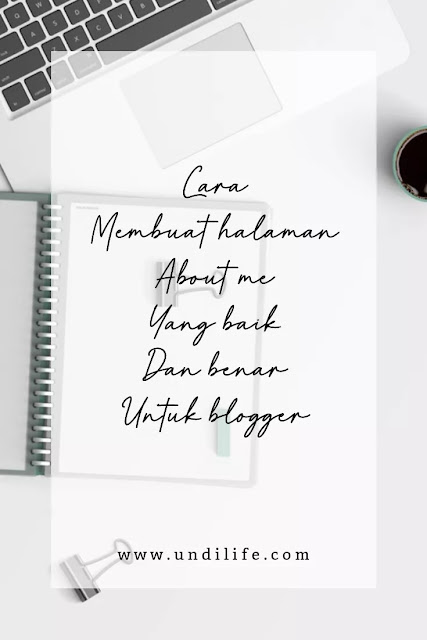 Cara
Membuat halaman
About me
Yang baik
Dan benar
Untuk blogger
www.undilife.com